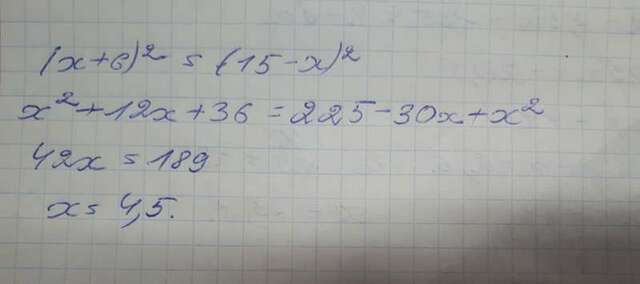 (x+6)² = (15-x)²
x²+12x+36 = 225-30x+x²
42x = 189
x = 4,5.